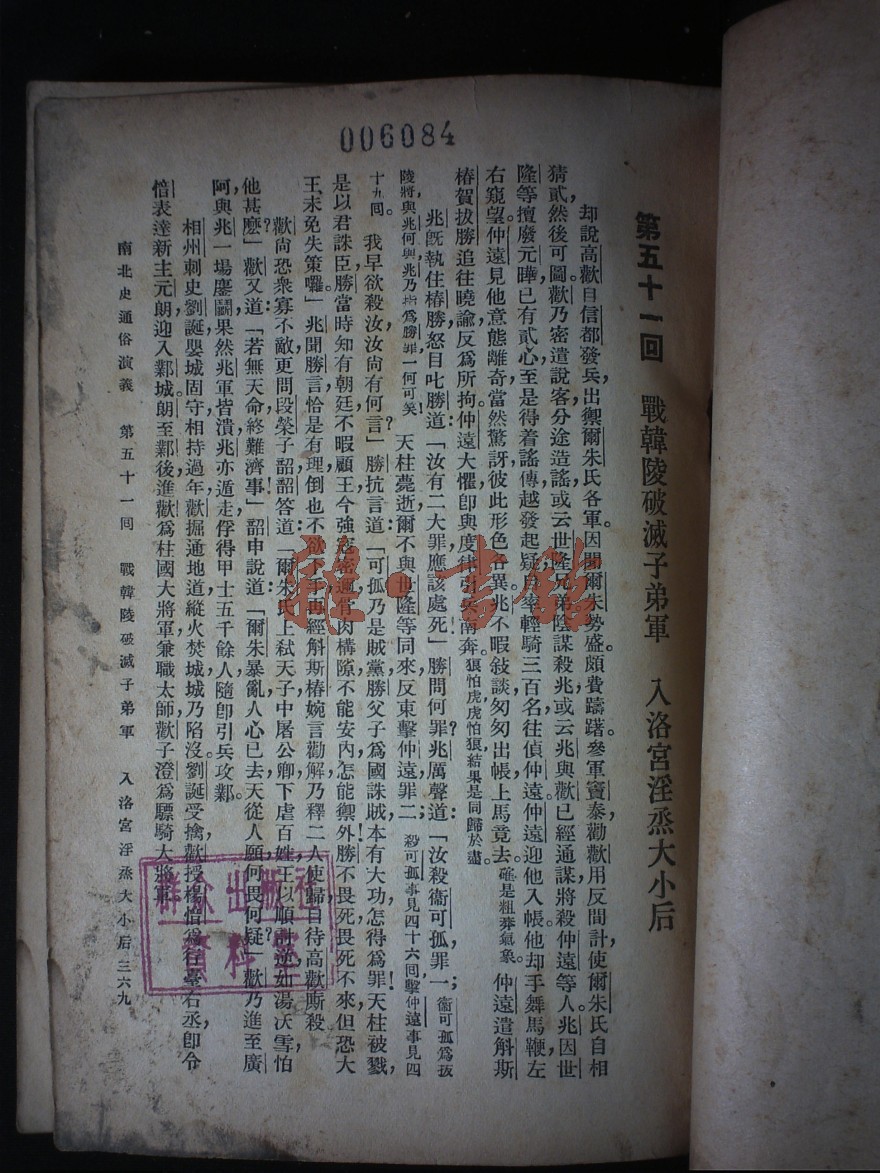 006084
第五十一回　戰韓陵破滅子弟軍　入洛宮淫烝大小后
却說高歡自信都發兵，出禦爾朱氏各軍。因聞爾朱勢盛，頗費躊躇。參軍竇泰勸歡用反間計，使爾朱氏自相
猜貳，然後可圖。歡乃密遣說客，分途造謠，或云世隆兄弟陰謀殺兆，或云兆與歡已經通謀，將殺仲遠等人。兆因世
隆等擅廢元曄，已有貳心，至是得着謠傳，越發起疑，自率輕騎三百名，往偵仲遠。仲遠迎他入帳，他却手舞馬鞭，左
右窺望。仲遠見他意態離奇，當然驚訝，彼此形色各異。兆不暇敍談，匆匆出帳，上馬竟去。確是粗莽氣象。仲遠遣斛斯
椿賀拔勝追往曉諭，反爲所拘。仲遠大懼，卽與度律引兵南奔。狼怕虎，虎怕狼，結果是同歸於盡。
兆旣執住椿勝，怒目叱勝道：「汝有二大罪，應該處死」勝問何罪？兆厲聲道：「汝殺衞可孤，罪一；衞可孤爲拔
陵將，與兆何與，兆乃指爲勝罪一，何可笑！天柱薨逝，爾不與世隆等同來，反東擊仲遠，罪二；殺可孤事見四十六回，擊仲遠事見四
十九回。我早欲殺汝，汝尙有何言」勝抗言道：「可孤乃是賊黨，勝父子爲國誅賊，本有大功，怎得爲罪！天柱被戮，
是以君誅臣，勝當時知有朝廷，不暇顧王。今強寇密邇，骨肉構隙，不能安內，怎能禦外！勝不畏死，畏死不來，但恐大
王未免失策囉」兆聞勝言，恰是有理，倒也不欲下手，再經斛斯椿婉言勸解，乃釋二人使歸，自待高歡廝殺
歡尙恐衆寡不敵，更問段榮子韶，韶答道：「爾朱氏上弒天子，中屠公卿，下虐百姓，王以順討逆，如湯沃雪，怕
他甚麽？」歡又道：「若無天命，終難濟事！」韶申說道：「爾朱暴亂，人心已去，天從人願，何畏何疑？」歡乃進至廣
阿，與兆一場鏖鬬，果然兆軍皆潰，兆亦遁走，俘得甲士五千餘人，隨卽引兵攻鄴。
相州刺史劉誕嬰城固守，相持過年，歡掘通地道，縱火焚城，城乃陷沒，劉誕受擒。歡授楊愔爲行臺右丞，卽令
愔表達新主元朗，迎入鄴城。朗至鄴後，進歡爲柱國大將軍，兼職太師，歡子澄爲驃騎大將軍。
南北史通俗演義　第五十一回　戰韓陵破滅子弟軍　入洛宮淫烝大小后　三六九
群众出版社
資料室